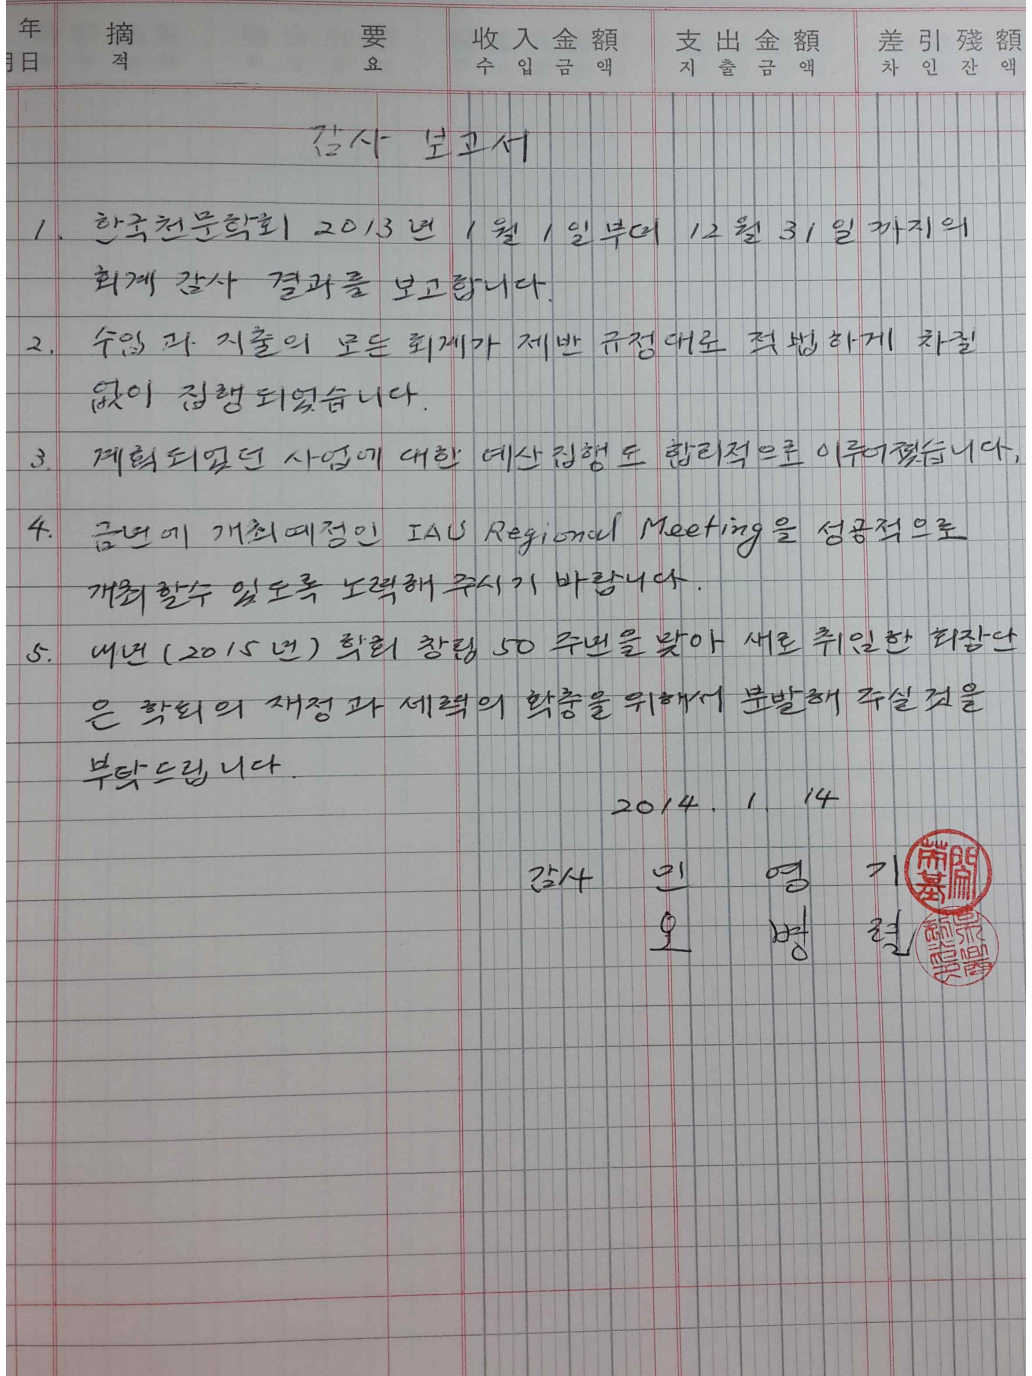 年 摘 要 收入金額 支出金額 差引殘額
日 적 요 수입금액 지출금액 차인잔액
감사 보고서
1. 한국천문학회 2013년 1월 1일부터 12월 31일까지의
회계 감사 결과를 보고합니다.
2. 수입과 지출의 모든 회계가 제반 규정대로 적법하게 차질
없이 집행되었습니다.
3. 계획되었던 사업에 대한 예산집행도 합리적으로 이루어졌습니다.
4. 금년에 개최예정인 IAU Regional Meeting을 성공적으로
개최할수 있도록 노력해 주시기 바랍니다.
5. 내년(2015년) 학회 창립 50주년을 맞아 새로 취임한 회장단
은 학회의 재정과 세력의 확충을 위해서 분발해 주실 것을
부탁드립니다.
2014. 1. 14
감사 민 영 기
오 병 렬